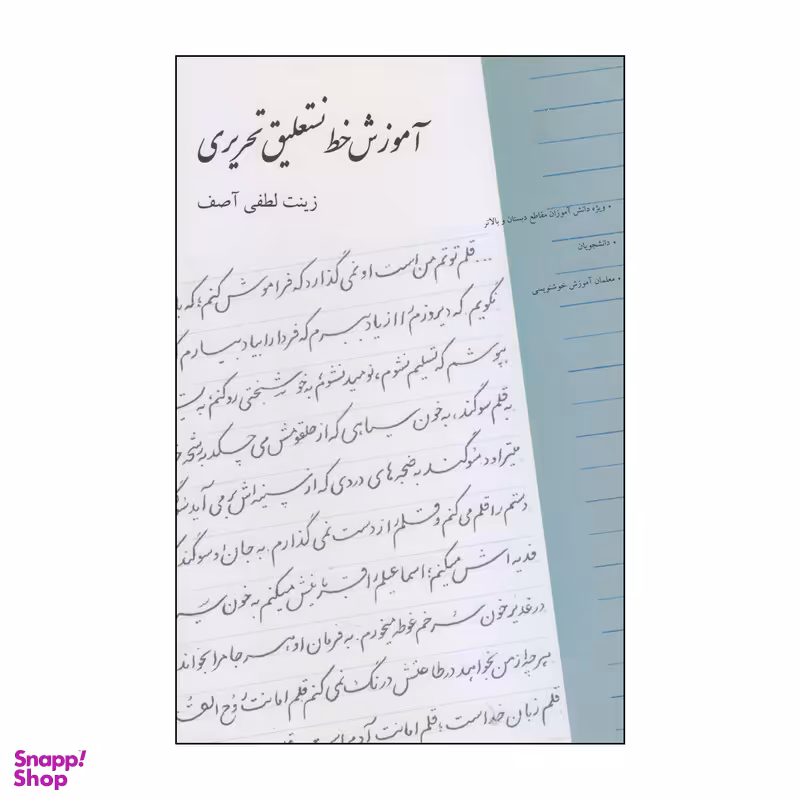 آموزش خط نستعلیق تحریری
زینت لطفی آصف
• ویژه دانش آموزان مقاطع دبستان و بالاتر
• دانشجویان
• معلمان آموزش خوشنویسی
...قلم توتم من است او نمی گذارد که فراموش کنم؛ که با
نگویم که دیروزم را از یاد ببرم که فردا را بیاد بیارم
بپوشم که تسلیم نشوم، نومید نشوم به خوشبختی رو کنم به
به قلم سوگند، به خون سیاهی که از حلقومش می چکد به رشحه
میتراود سوگند به ضجه های دردی که از سینه اش بر می آید سوگ
دستم را قلم می کنم و قلم را از دست نمی گذارم. به جان او سوگند ک
فدیه اش میکنم؛ اسماعیلم را قربانیش میکنم به خون
در غدیر خون سرخم غوطه میخورم. به فرمان او هر جا مرا بخواند
هرچه از من بخواهد در طاعتش درنگ نمی کنم قلم امانت روح القد
قلم زبان خداست؛ قلم امانت آدم است
Snapp!
Shop